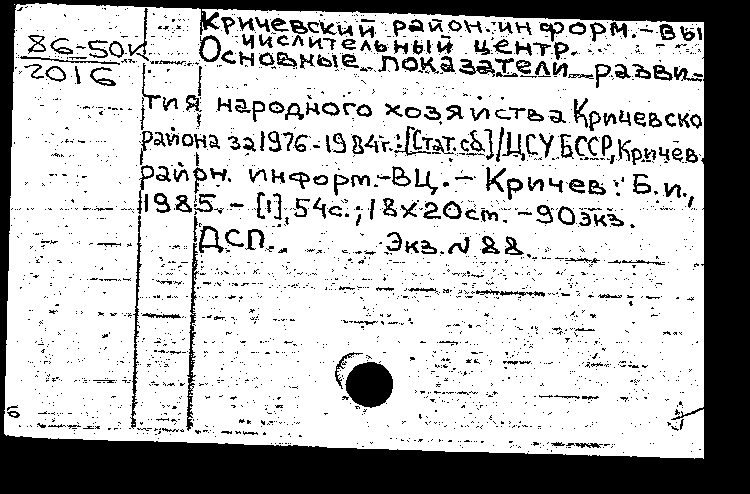 Кричевский район. информ.-вы
числительный центр.
86-50к
2016
Основные показатели разви-
тия народного хозяйства Кричевско
района за 1976-1984г.:[Стат.сб]/ЦСУ БССР, Кричев.
район. информ.-ВЦ. - Кричев: Б.и.,
1985. - [1], 54с.; 18х20cm. - 90экз.
ДСП. Экз. N 88.
б